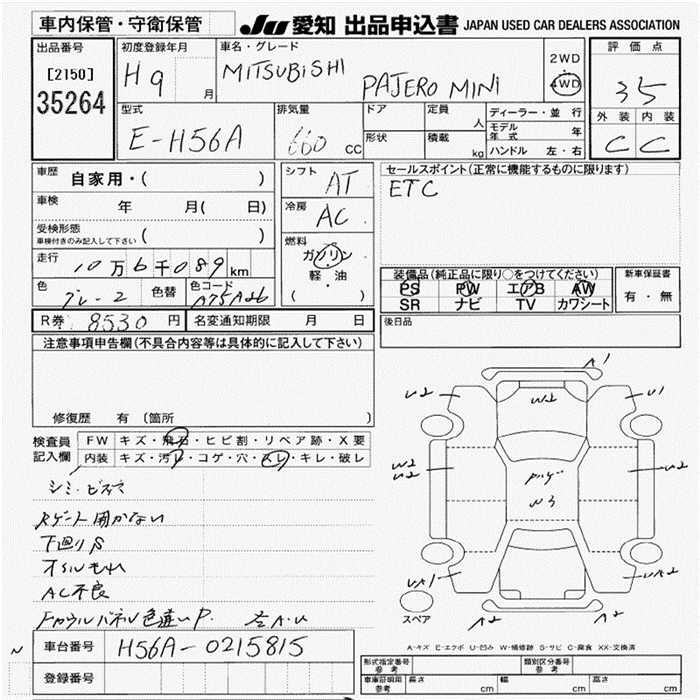 車内保管・守衛保管
JU 愛知 出品申込書 JAPAN USED CAR DEALERS ASSOCIATION
出品番号
[2150]
35264
初度登録年月
H9 月
車名・グレード
MITSUBISHI PAJERO MINI
2WD
4WD
評価点
35
型式
E-H56A
排気量
660 CC
ドア
形状
定員 人
積載 kg
ディーラー・並行
モデル年式 年
ハンドル 左・右
外装 内装
C C
車歴 自家用・( )
車検 年 月( 日)
受検形態
車検付きのみ記入して下さい ( )
走行 10万6千089km
色 グレー2 色替 色コード A75A26
R券 8530円 名変通知期限 月 日
シフト AT
冷房 AC
燃料
ガソリン
軽・油
( )
セールスポイント(正常に機能するものに限ります)
ETC
装備品(純正品に限り○をつけてください)
PS PW エアB AW
SR ナビ TV カワシート
新車保証書
有・無
後日品
注意事項申告欄(不具合内容等は具体的に記入して下さい)
修復歴 有 (箇所 )
検査員記入欄
FW キズ・飛石・ヒビ割・リペア跡・X要
内装 キズ・汚レ・コゲ・穴・スレ・キレ・破レ
シミ・ビス穴
Rゲート開かない
下廻りS
オイルもれ
AC不良
Fカウルパネル色違いP. 左A・U
A1
U2 W2 U1
W2
U2
U2
W3
UA1 UA2
A2 A2
スペア
A-キズ E-エクボ U-凹み W-補修跡 S-サビ C-腐食 XX-交換済
N
車台番号 H56A-0215815
登録番号
形式指定番号 参考
類別区分番号 参考
車庫証明用 参考 長さ cm 幅 cm 高さ cm